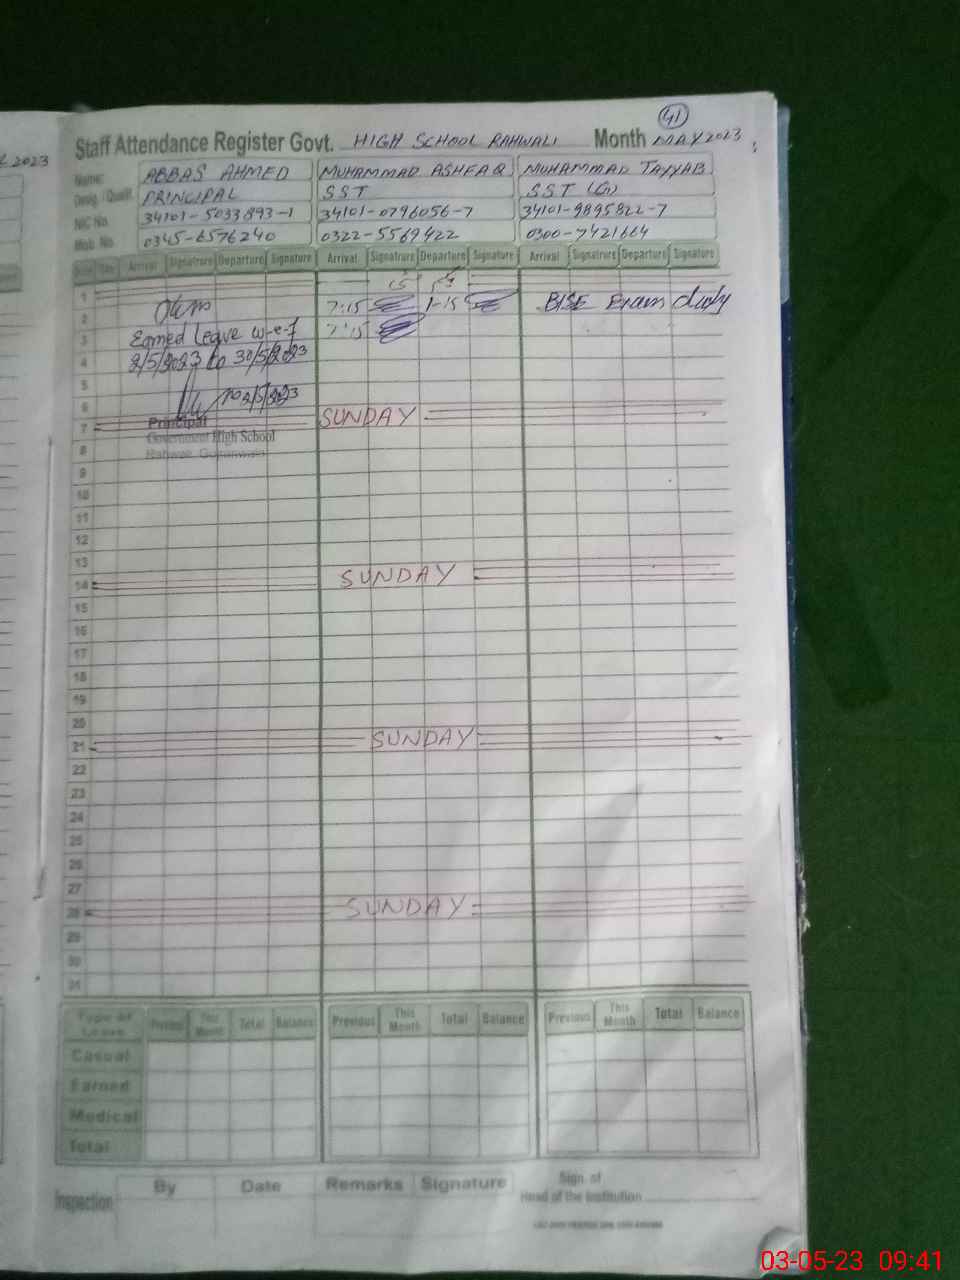 2023
41
Staff Attendance Register Govt. HIGH SCHOOL RAHWALI Month MAY 2023
Name: ABBAS AHMED MUHAMMAD ASHFAQ MUHAMMAD TAYYAB
Desig. / Qualif. PRINCIPAL SST SST (G)
NIC No. 34101-5033893-1 34101-0796056-7 34101-9895822-7
Mob No. 0345-6576240 0322-5569422 0300-7421664
Date Time Arrival Signatrure Departure Signature Arrival Signatrure Departure Signature Arrival Signatrure Departure Signature
1
2 7:15 1-15 BISE Exam duty
3 Earned Leave w-e-f 7:15
4 2/5/2023 to 30/5/2023
5
6 2/5/2023
Principal
7 SUNDAY
Government High School
8 Rahwali Gujranwala
9
10
11
12
13
14 SUNDAY
15
16
17
18
19
20
21 SUNDAY
22
23
24
25
26
27
28 SUNDAY
29
30
31
Type of Leave Previous This Month Total Balance Previous This Month Total Balance Previous This Month Total Balance
Casual
Earned
Medical
Total
Inspection By Date Remarks Signature Sign. of
Head of the Institution
03-05-23 09:41